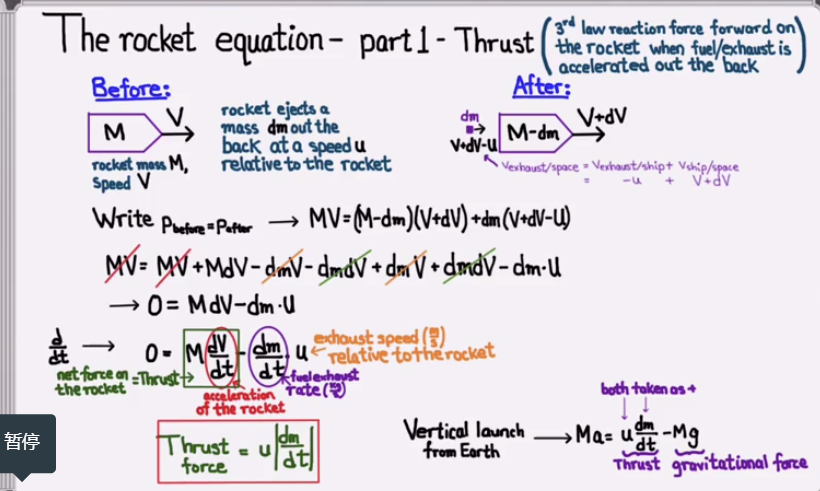 The rocket equation - part 1 - Thrust (3rd law reaction force forward on the rocket when fuel/exhaust is accelerated out the back)
Before:
After:
M
V
rocket mass M,
speed V
rocket ejects a
mass dm out the
back at a speed u
relative to the rocket
dm
V+dV-u
M-dm
V+dV
Vexhaust/space = Vexhaust/ship + Vship/space
= -u + V+dV
Write Pbefore = Pafter → MV=(M-dm)(V+dV)+dm(V+dV-u)
MV = MV + MdV - dmV - dmdV + dmV + dmdV - dm·u
→ 0 = MdV-dm·u
d/dt → 0 = M dV/dt - dm/dt · u
exhaust speed (m/s)
relative to the rocket
net force on
the rocket = Thrust →
acceleration
of the rocket
fuel exhaust
rate (kg/s)
Thrust force = u|dm/dt|
both taken as +
Vertical launch
from Earth → Ma = u dm/dt - Mg
Thrust gravitational force
暂停